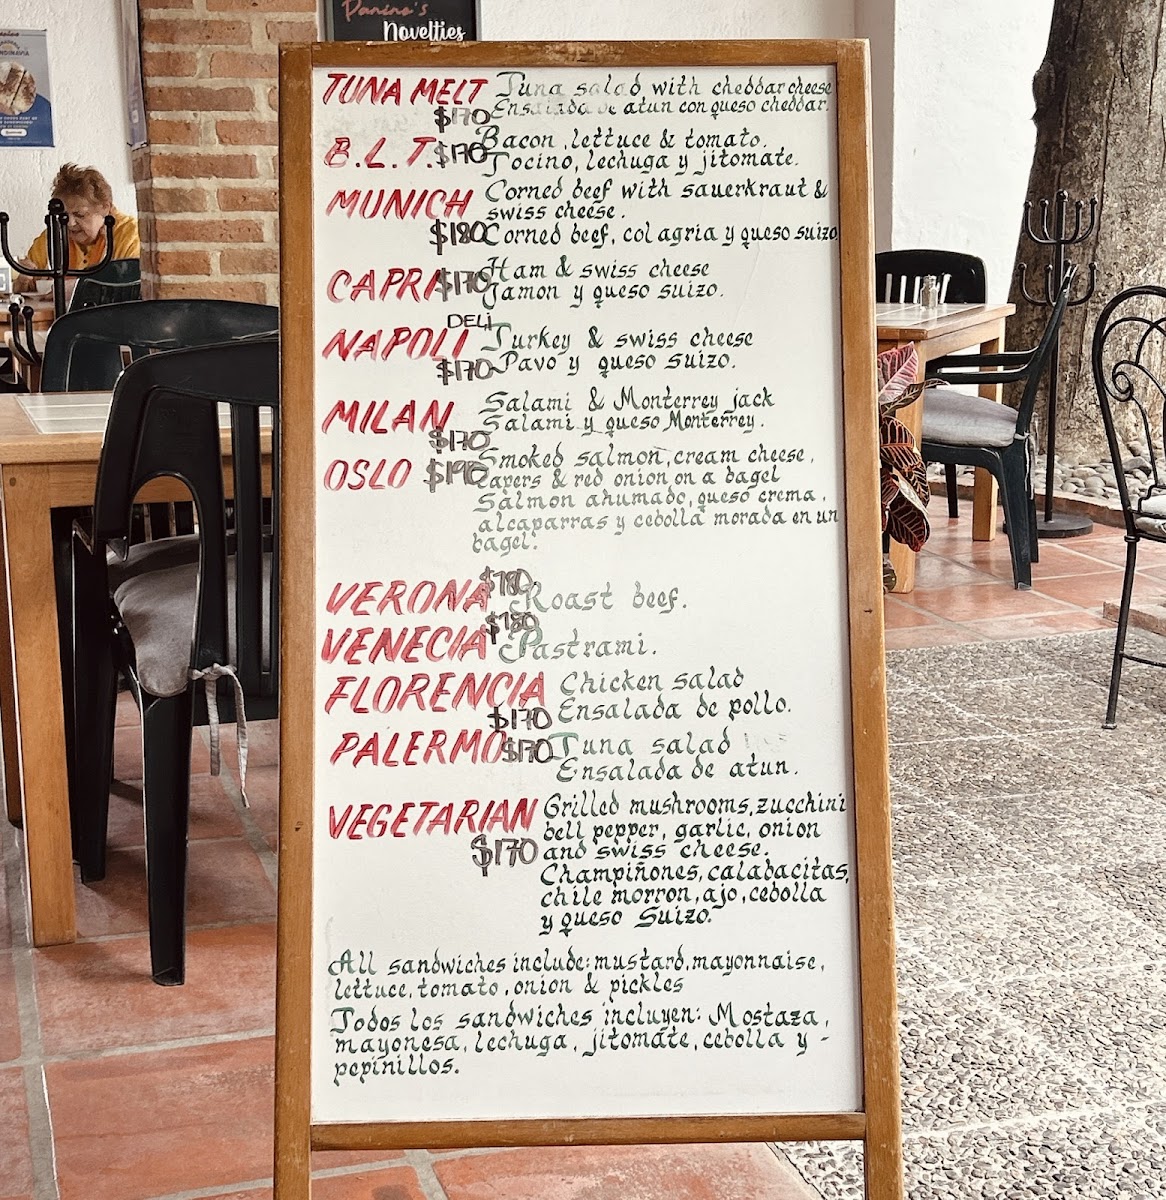 Panino's
Novelties
TUNA MELT $170 Tuna salad with cheddar cheese
Ensalada de atun con queso cheddar.
B.L.T. $170 Bacon, lettuce & tomato.
Tocino, lechuga y jitomate.
MUNICH $180 Corned beef with sauerkraut &
swiss cheese.
Corned beef, col agria y queso suizo.
CAPRI $170 Ham & swiss cheese
Jamon y queso suizo.
DELI
NAPOLI $170 Turkey & swiss cheese
Pavo y queso suizo.
MILAN $170 Salami & Monterrey jack
Salami y queso Monterrey.
OSLO $190 Smoked salmon, cream cheese,
capers & red onion on a bagel
Salmon ahumado, queso crema,
alcaparras y cebolla morada en un
bagel.
VERONA $180 Roast beef.
VENECIA $180 Pastrami.
FLORENCIA $170 Chicken salad
Ensalada de pollo.
PALERMO $170 Tuna salad
Ensalada de atun.
VEGETARIAN $170 Grilled mushrooms, zucchini
bell pepper, garlic, onion
and swiss cheese.
Champiñones, calabacitas,
chile morron, ajo, cebolla
y queso Suizo.
All sandwiches include: mustard, mayonnaise,
lettuce, tomato, onion & pickles
Todos los sandwiches incluyen: Mostaza,
mayonesa, lechuga, jitomate, cebolla y -
pepinillos.